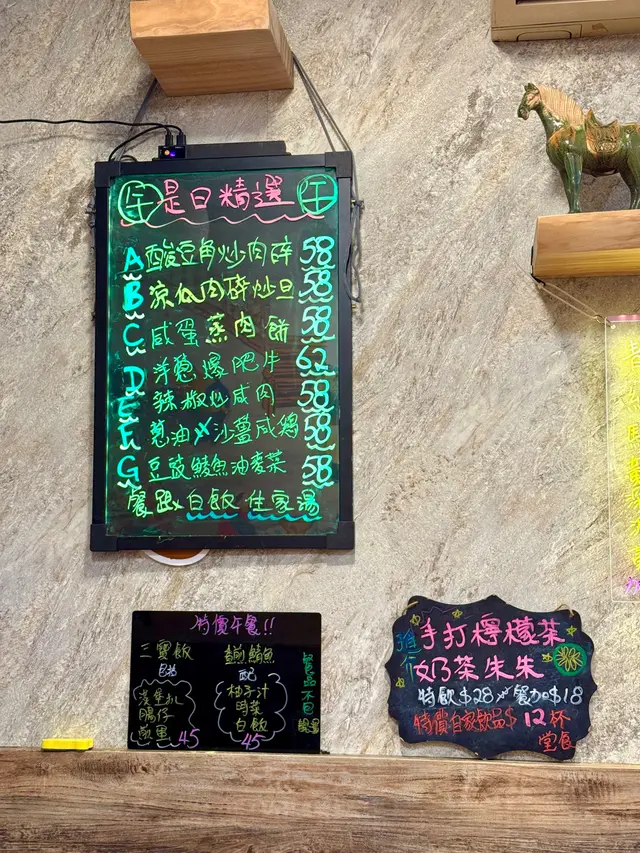 午 是日精選 午
A 酸豆角炒肉碎 58
B 凉瓜肉碎炒旦 58
C 咸蛋蒸肉餅 58
D 洋蔥爆肥牛 62
E 辣椒炒咸肉 58
F 蔥油沙薑咸鷄 58
G 豆豉鯪魚油麥菜 58
餐跟 白飯 住家湯
特價午餐!!
三寶飯
腸仔
煎蛋 45
配
柚子汁
時菜
白飯
45
手打檸檬茶
奶茶朱朱
特飲$28 餐加$18
特價自家飲品$12杯
堂食